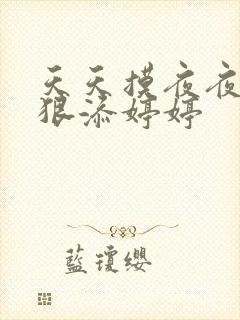 天天摸夜夜
狠添婷婷
藍瓊纓